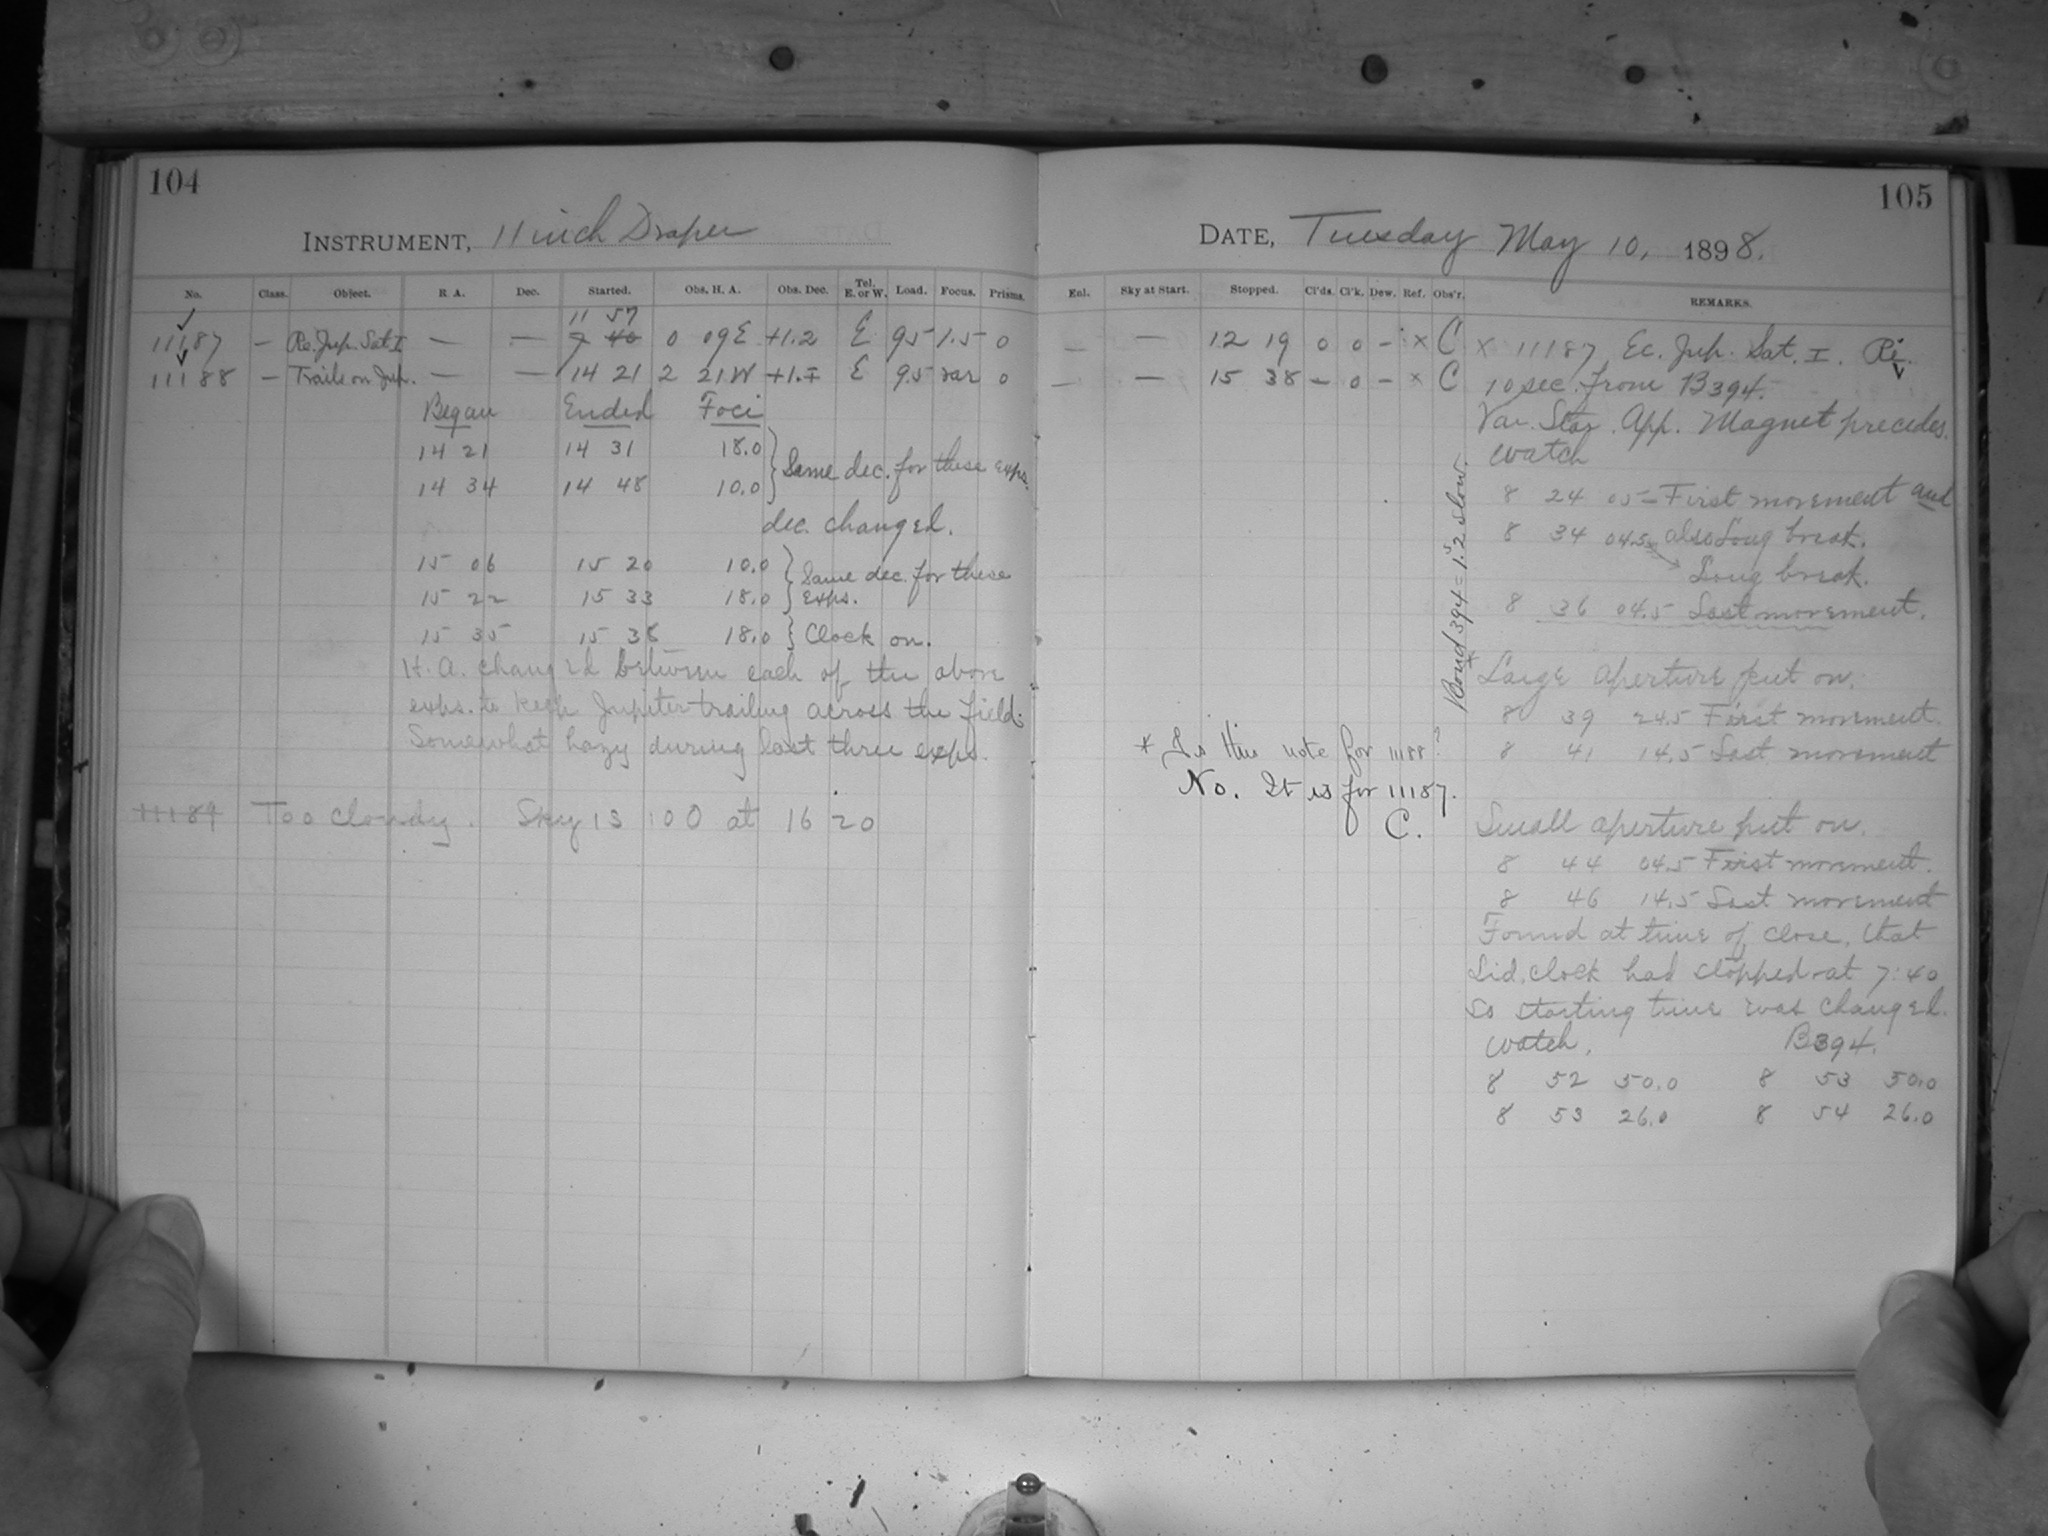 104
INSTRUMENT, 11 inch Draper
No. Class. Object. R. A. Dec. Started. Obs. H. A. Obs. Dec. Tel. E. or W. Load. Focus. Prisms.
11 57
11187 — Re. Jup. Sat. I — — 7 40 0 09E +1.2 E 95 1.5 0
11188 — Trails on Jup. — — 14 21 2 21W E 9.5 var 0
Began Ended Foci
14 21 14 31 18.0
14 34 14 48 10.0 } Same dec. for these exps.
dec. changed.
15 06 15 20 10.0 } Same dec. for these
15 22 15 33 18.0 } exps.
15 35 15 38 18.0 } Clock on.
H. A. changed between each of the above
exps. to keep Jupiter trailing across the field.
Somewhat hazy during last three exps.
11189 Too cloudy. Sky is 100 at 16 20
105
DATE, Tuesday May 10, 1898.
Enl. Sky at Start. Stopped. Cl'ds. Cl'k. Dew. Ref. Obs'r. REMARKS.
— — 12 19 0 0 - x C x 11187 Ec. Jup. Sat. I.
— — 15 38 – 0 - x C 10 sec. from B394.
Var. Star. App. Magnet precedes.
watch
8 24 05 – First movement and
8 34 04.5 also Long break.
Long break.
8 36 04.5 Last movement.
Bond 394 = 1.2s slow.
* Large aperture put on.
8 39 24.5 First movement.
8 41 14.5 Last movement
* Is this note for 11188?
No. It is for 11187.
C.
Small aperture put on.
8 44 04.5 First movement.
8 46 14.5 Last movement
Found at time of close, that
Sid. clock had stopped at 7:40
So starting time was changed.
watch. B394.
8 52 50.0 8 53 50.0
8 53 26.0 8 54 26.0